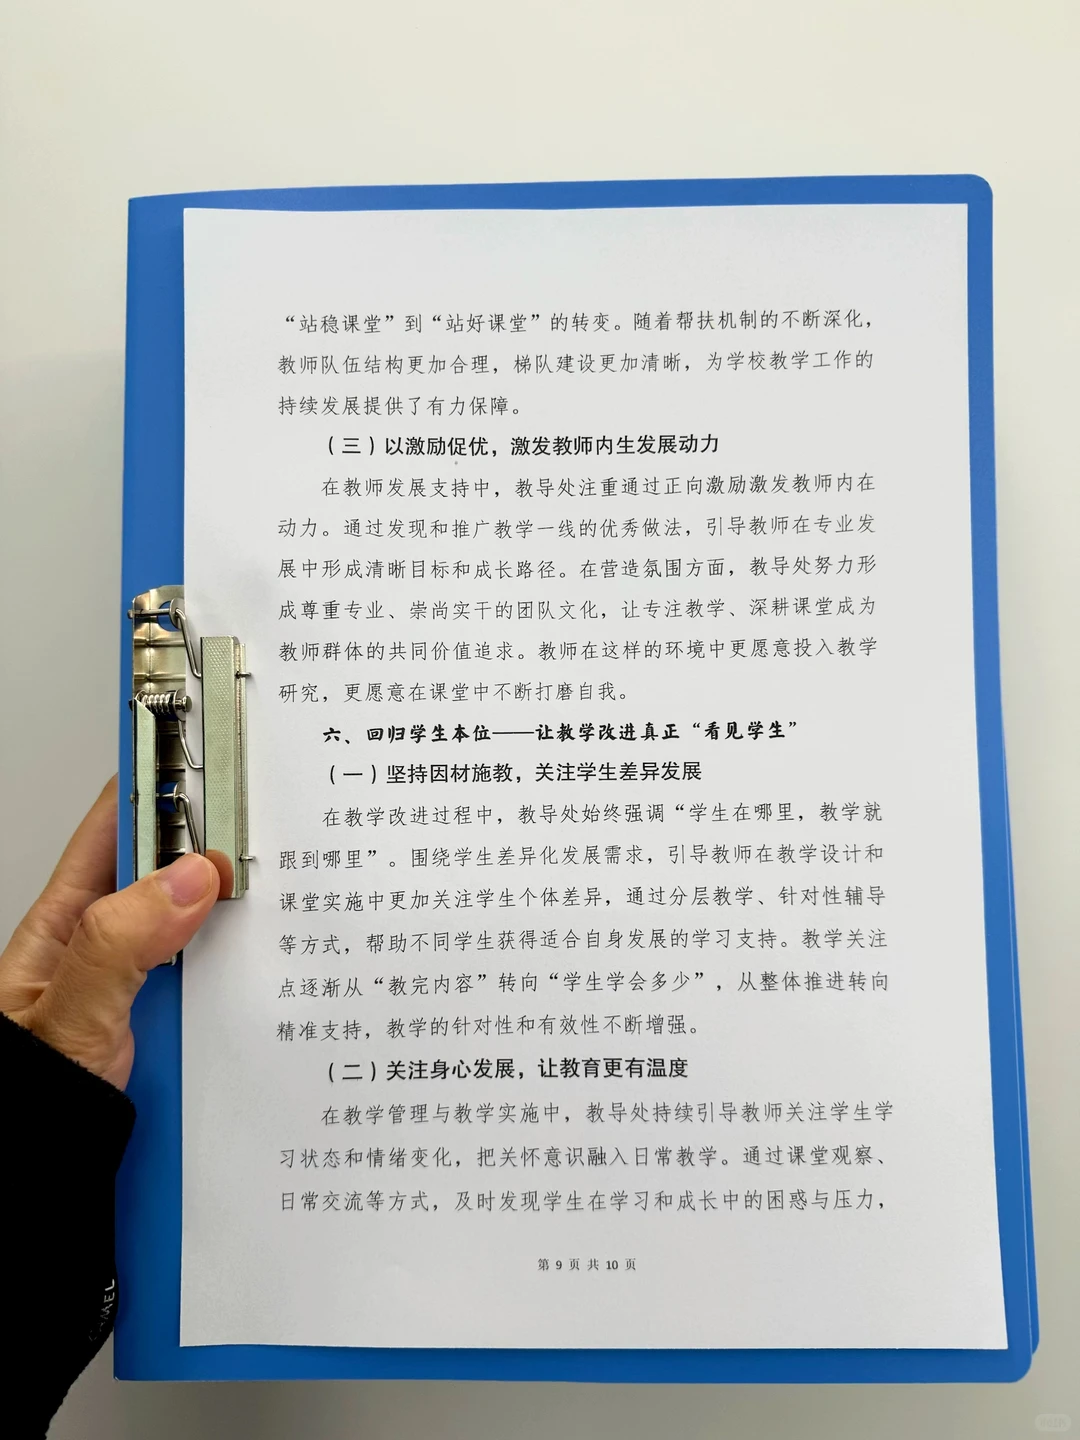 “站稳课堂”到“站好课堂”的转变。随着帮扶机制的不断深化，
教师队伍结构更加合理，梯队建设更加清晰，为学校教学工作的
持续发展提供了有力保障。
（三）以激励促优，激发教师内生发展动力
在教师发展支持中，教导处注重通过正向激励激发教师内在
动力。通过发现和推广教学一线的优秀做法，引导教师在专业发
展中形成清晰目标和成长路径。在营造氛围方面，教导处努力形
成尊重专业、崇尚实干的团队文化，让专注教学、深耕课堂成为
教师群体的共同价值追求。教师在这样的环境中更愿意投入教学
研究，更愿意在课堂中不断打磨自我。
六、回归学生本位——让教学改进真正“看见学生”
（一）坚持因材施教，关注学生差异发展
在教学改进过程中，教导处始终强调“学生在哪里，教学就
跟到哪里”。围绕学生差异化发展需求，引导教师在教学设计和
课堂实施中更加关注学生个体差异，通过分层教学、针对性辅导
等方式，帮助不同学生获得适合自身发展的学习支持。教学关注
点逐渐从“教完内容”转向“学生学会多少”，从整体推进转向
精准支持，教学的针对性和有效性不断增强。
（二）关注身心发展，让教育更有温度
在教学管理与教学实施中，教导处持续引导教师关注学生学
习状态和情绪变化，把关怀意识融入日常教学。通过课堂观察、
日常交流等方式，及时发现学生在学习和成长中的困惑与压力，
第 9 页 共 10 页